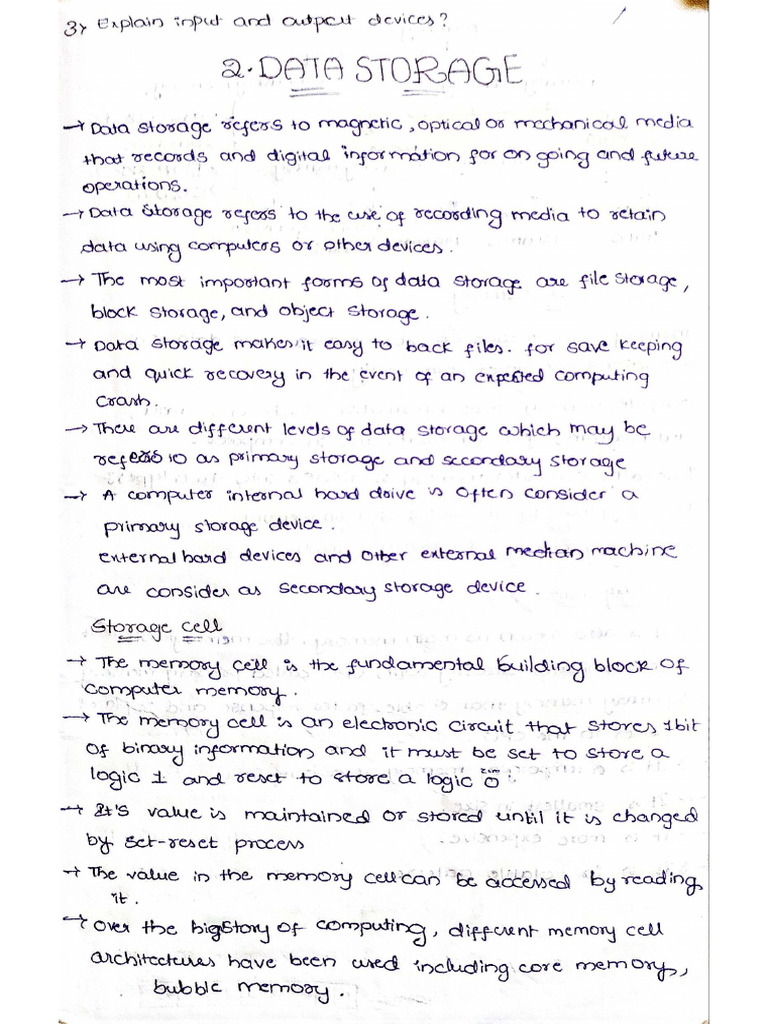 3) Explain input and output devices?
2. DATA STORAGE
→ Data storage refers to magnetic, optical or mechanical media
that records and digital information for on going and future
operations.
→ Data Storage refers to the use of recording media to retain
data using computers or other devices.
→ The most important forms of data storage are file storage,
block storage, and object storage.
→ Data storage makes it easy to back files. for save keeping
and quick recovery in the event of an expected computing
crash.
→ There are different levels of data storage which may be
refers to as primary storage and secondary storage
→ A computer internal hard drive is often consider a
primary storage device.
external hard devices and other external median machine
are consider as secondary storage device.
Storage cell
→ The memory cell is the fundamental building block of
computer memory.
→ The memory cell is an electronic circuit that stores 1bit
of binary information and it must be set to store a
logic 1 and reset to store a logic 0.
→ It's value is maintained or stored until it is changed
by set-reset process
→ The value in the memory cell can be accessed by reading
it.
→ Over the bigstory of computing, different memory cell
architectures have been used including core memory,
bubble memory.